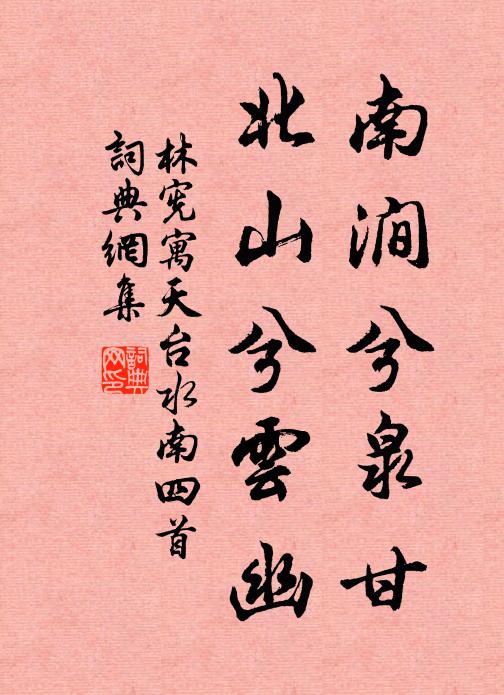 南澗兮泉甘
北山兮雲幽
林宪寓天台水南四首
詞典網集
詞典網印